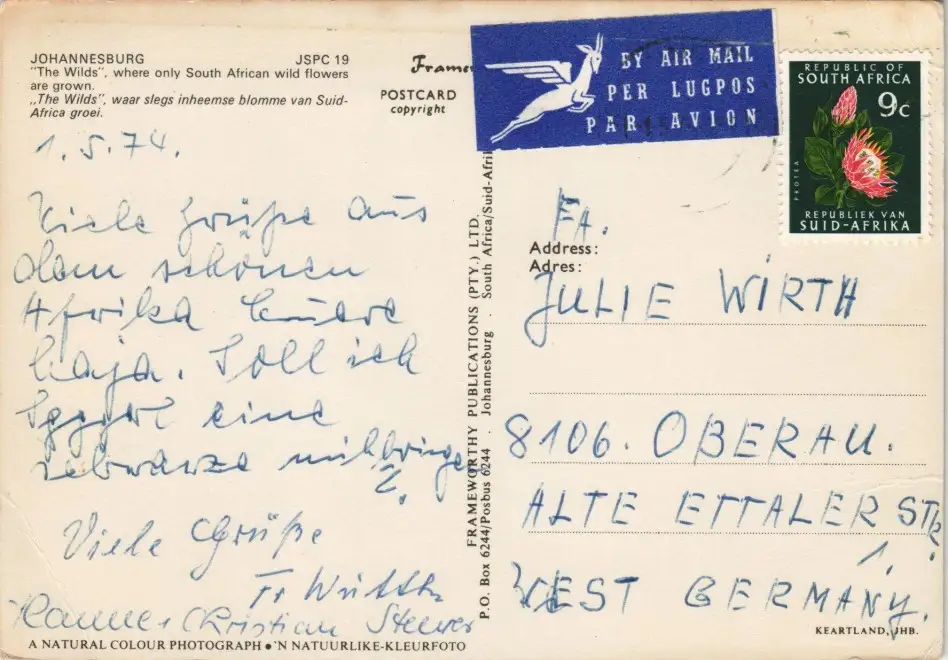 JOHANNESBURG JSPC 19
"The Wilds", where only South African wild flowers
are grown.
„The Wilds", waar slegs inheemse blomme van Suid-
Afrika groei.
POSTCARD
copyright
BY AIR MAIL
PER LUGPOS
PAR AVION
REPUBLIC OF
SOUTH AFRICA
9c
PROTEA
REPUBLIEK VAN
SUID-AFRIKA
1.5.74.
Viele Grüße aus
dem schönen
Afrika
Soll ich
eine
schwarze mitbringen
?
Viele Grüße
Fr
Hanne + Christian
FRAMEWORTHY PUBLICATIONS (PTY.) LTD.
P.O. Box 6244/Posbus 6244 . Johannesburg . South Africa/Suid-Afri
FA.
Address:
Adres:
JULIE WIRTH
8106. OBERAU.
ALTE ETTALER STR
1.
WEST GERMANY.
KEARTLAND, JHB.
A NATURAL COLOUR PHOTOGRAPH ● 'N NATUURLIKE-KLEURFOTO